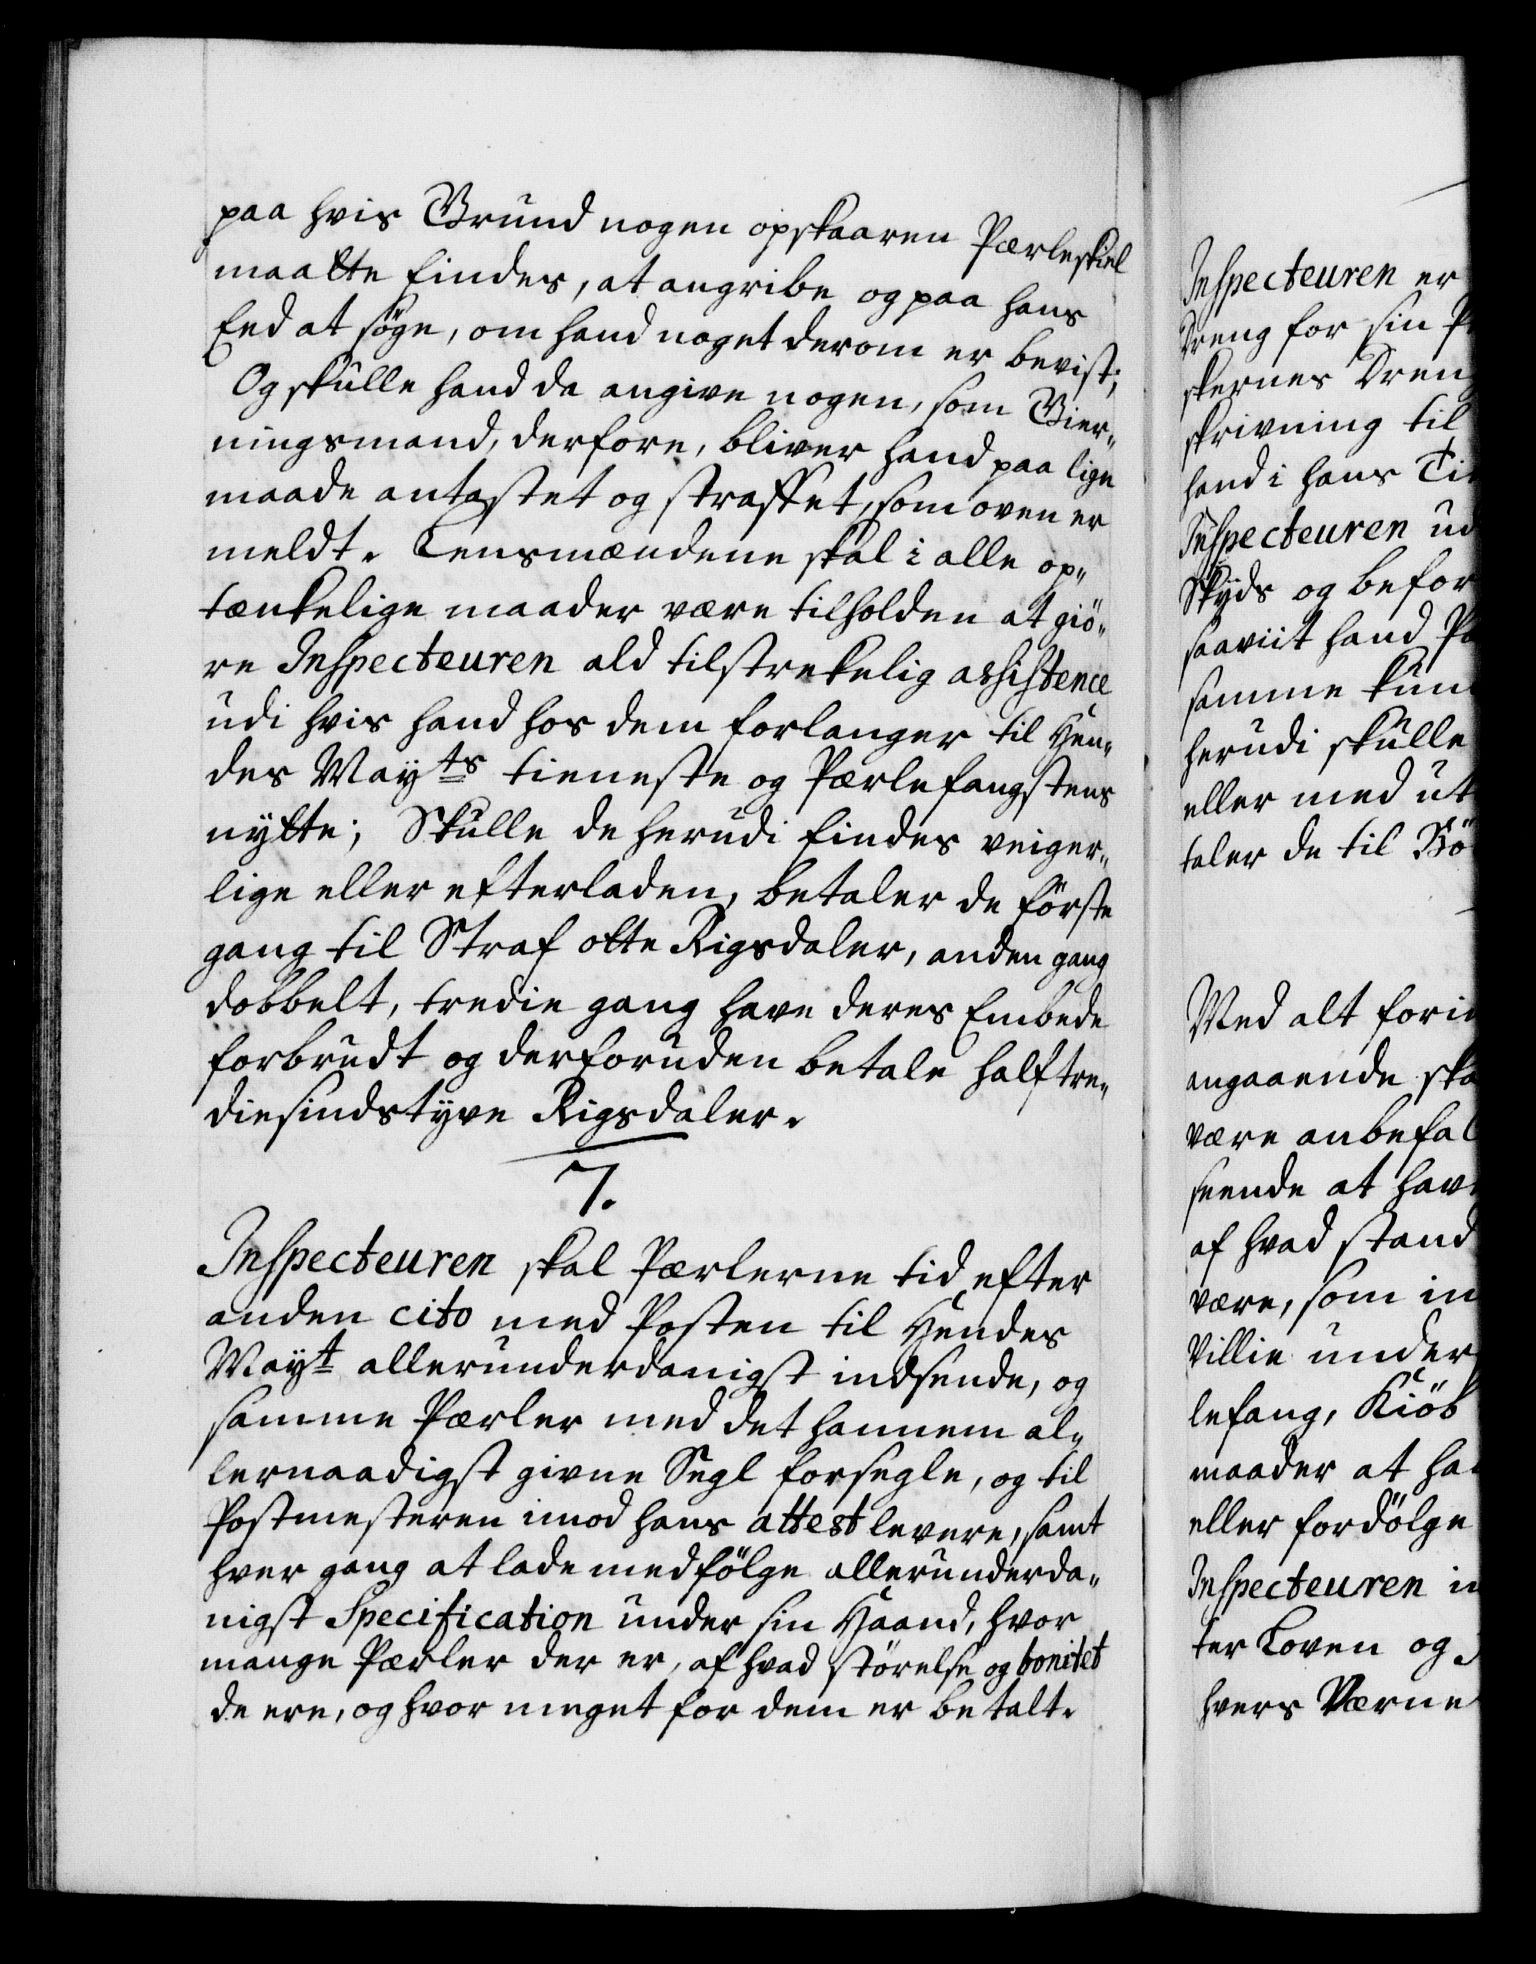 paa hvis Grund nogen opskaaren Pærleskiel
maatte findes, at angribe og paa hans
Eed at søge, om hand noget derom er bevist;
Og skulle hand da angive nogen, som Gier„
ningsmand, derfore, bliver hand paa lige
maade antastet og straffet, som oven er
meldt. Lensmændene skal i alle op„
tænkelige maader være tilholden at giö„
re Inspecteuren ald tilstrekelig assistence
udi hvis hand hos dem forlanger til Hen„
des Mayts tieneste og Pærlefangstens
nytte; Skulle de herudi findes veiger„
lige eller efterladen, betaler de förste
gang til Straf otte Rigsdaler, anden gang
dobbelt, tredie gang have deres Embede
forbrudt og derforuden betale halftre„
diesindstyve Rigsdaler.
7.
Inspecteuren skal Pærlerne tid efter
anden cito med Posten til Hendes
Mayt allerunderdanigst indsende, og
samme Pærler med det hannem al„
lernaadigst givne Segl forsegle, og til
Postmesteren imod hans attest levere, samt
hver gang at lade medfölge allerunderda„
nigst Specification under sin Haand, hvor
mange Pærler der er, af hvad störelse og bonitet
de ere, og hvor meget for dem er betalt.
Inspecteuren er
Dreng for sin
skernes Dreng
skrivning til
hand i hans
Inspecteuren ud
Skyds og befor
saaviit hand
samme kun
herudi skulle
eller med ut
taler de til Bö
Med alt fori
angaaende ska
være anbefal
seende at hav
af hvad stand
være, som in
Villie under
lefang, Kiöb
maader at ha
eller fordölge
Inspecteuren i
ter Loven og
hvers Værne